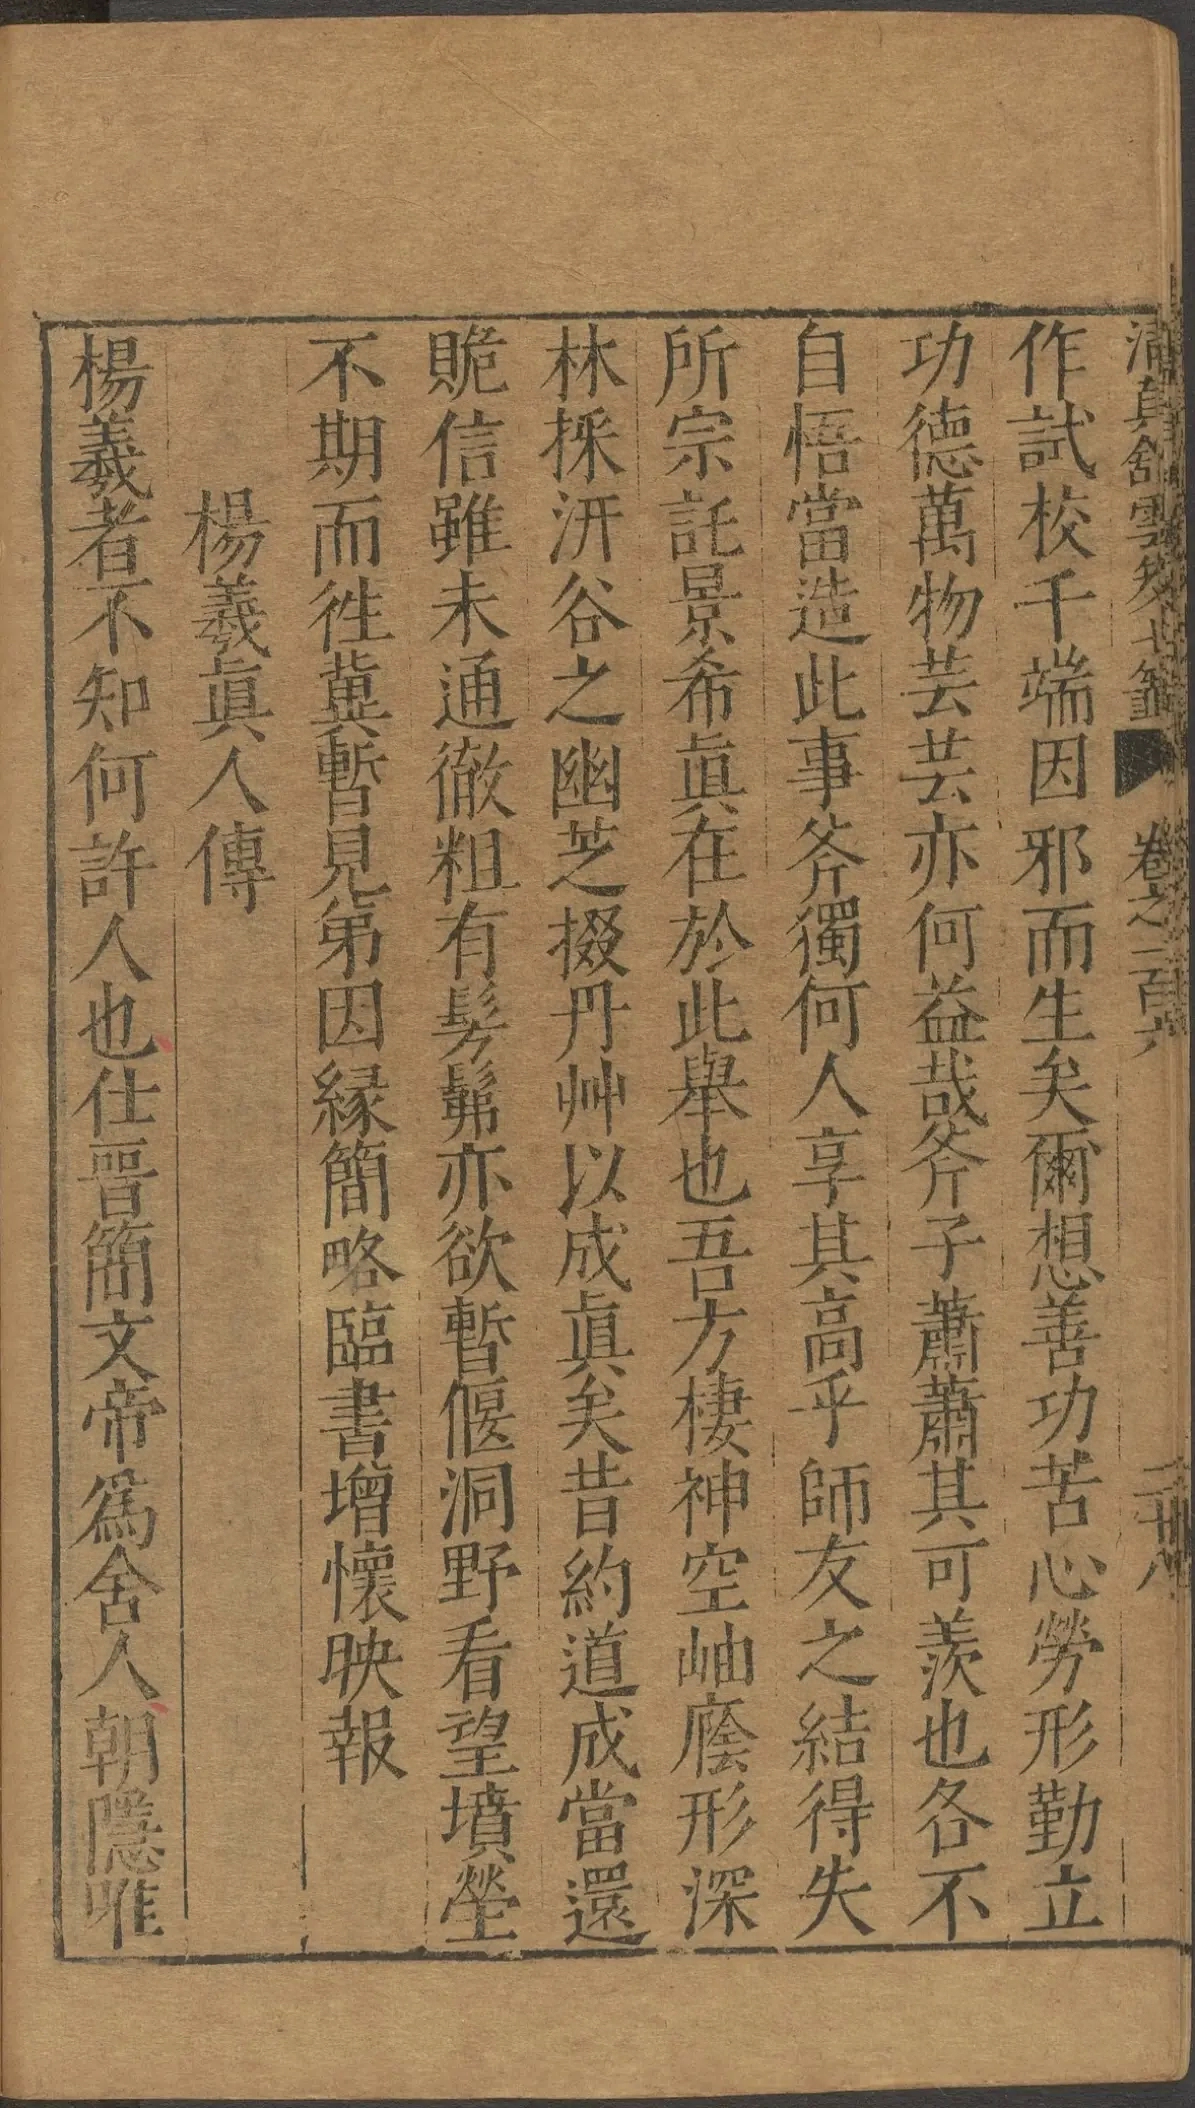 清真館雲笈七籤 卷之一百六 二十八
作試校千端因邪而生矣爾想善功苦心勞形勤立
功德萬物芸芸亦何益哉斧子蕭蕭其可羨也各不
自悟當造此事斧獨何人享其高乎師友之結得失
所宗託景希眞在於此舉也吾方棲神空岫廕形深
林採汧谷之幽芝掇丹艸以成眞矣昔約道成當還
貺信雖未通徹粗有髣髴亦欲暫偃洞野看望墳塋
不期而徃冀暫見弟因緣簡略臨書增懷映報
楊羲眞人傳
楊羲者不知何許人也仕晉簡文帝爲舍人朝隱唯